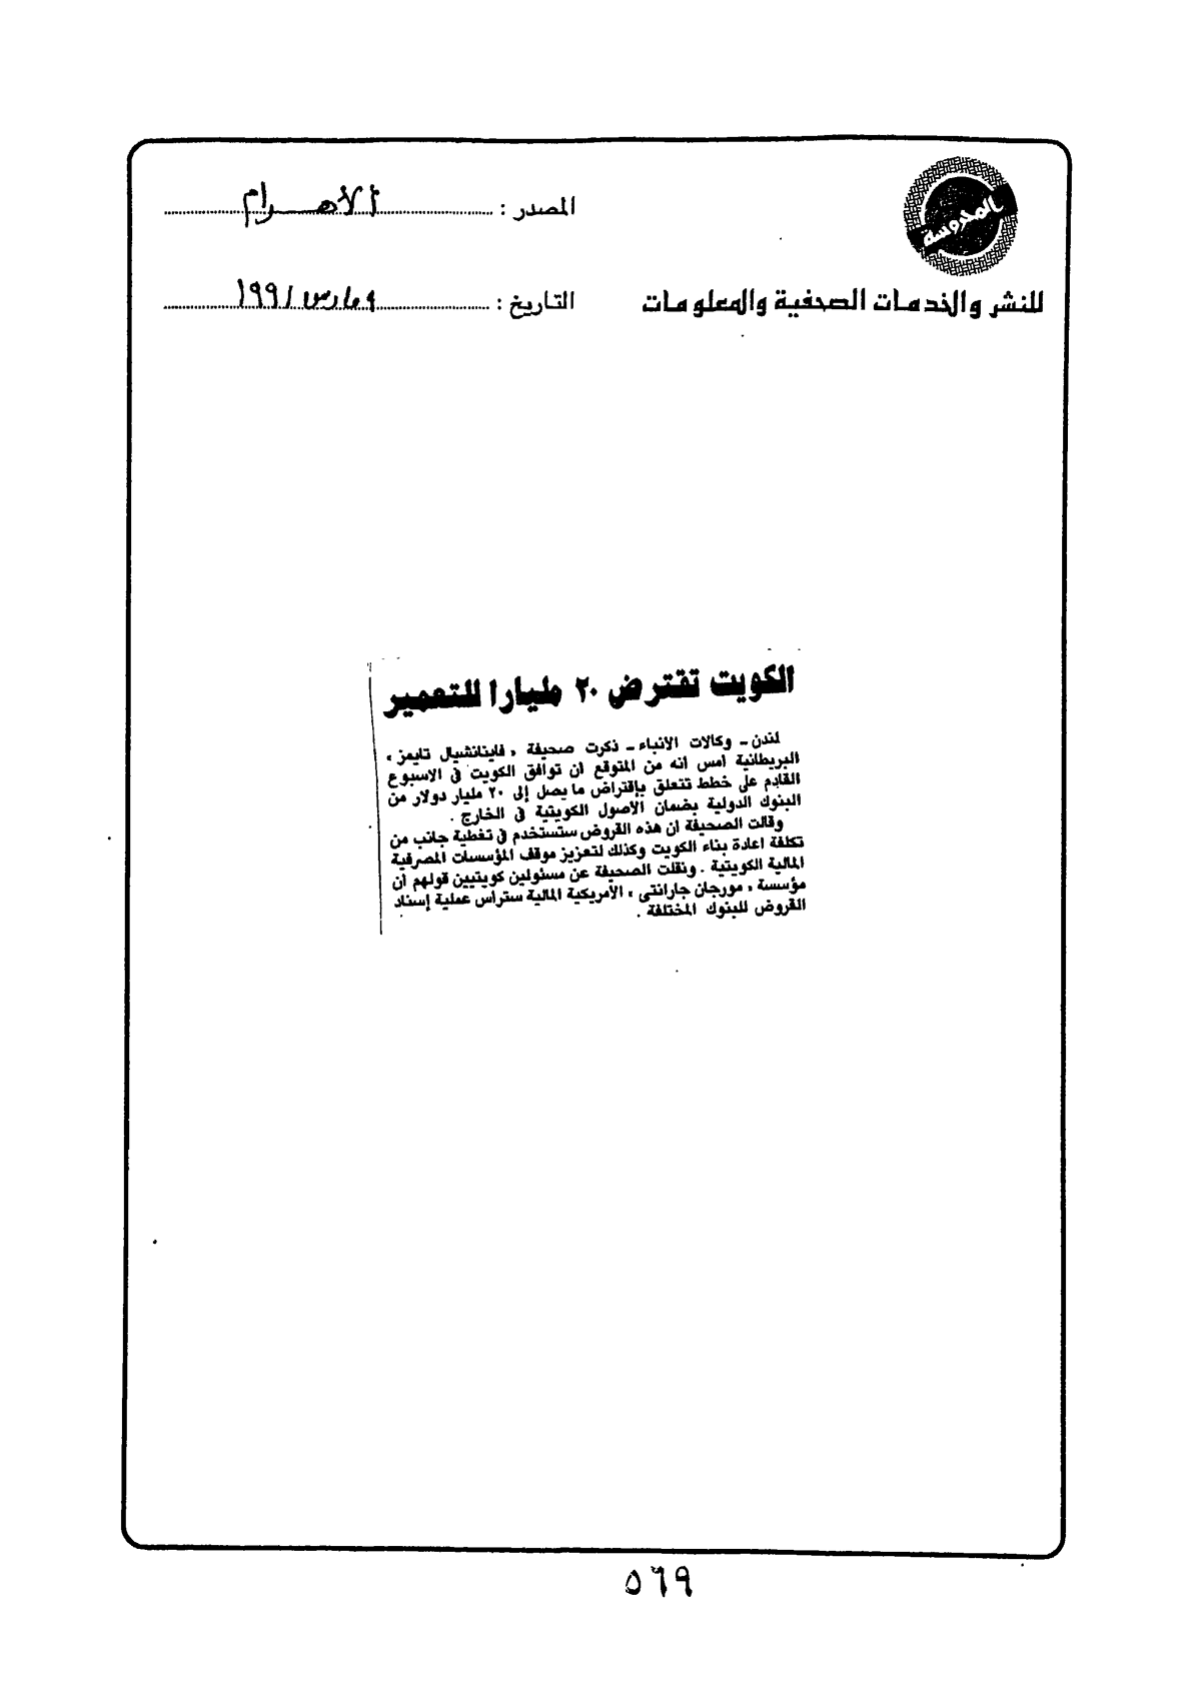 المحروسة
للنشر والخدمات الصحفية والمعلومات
المصدر : الأهرام
التاريخ : ٩ مارس ١٩٩١
الكويت تقترض ٢٠ مليارا للتعمير
لندن - وكالات الانباء - ذكرت صحيفة « فاينانشيال تايمز »
البريطانية امس انه من المتوقع ان توافق الكويت فى الاسبوع
القادم على خطط تتعلق بإقتراض ما يصل إلى ٢٠ مليار دولار من
البنوك الدولية بضمان الاصول الكويتية فى الخارج .
وقالت الصحيفة ان هذه القروض ستستخدم فى تغطية جانب من
تكلفة اعادة بناء الكويت وكذلك لتعزيز موقف المؤسسات المصرفية
المالية الكويتية . ونقلت الصحيفة عن مسئولين كويتيين قولهم ان
مؤسسة « مورجان جارانتى » الأمريكية المالية ستراس عملية إسناد
القروض للبنوك المختلفة .
٥٦٩